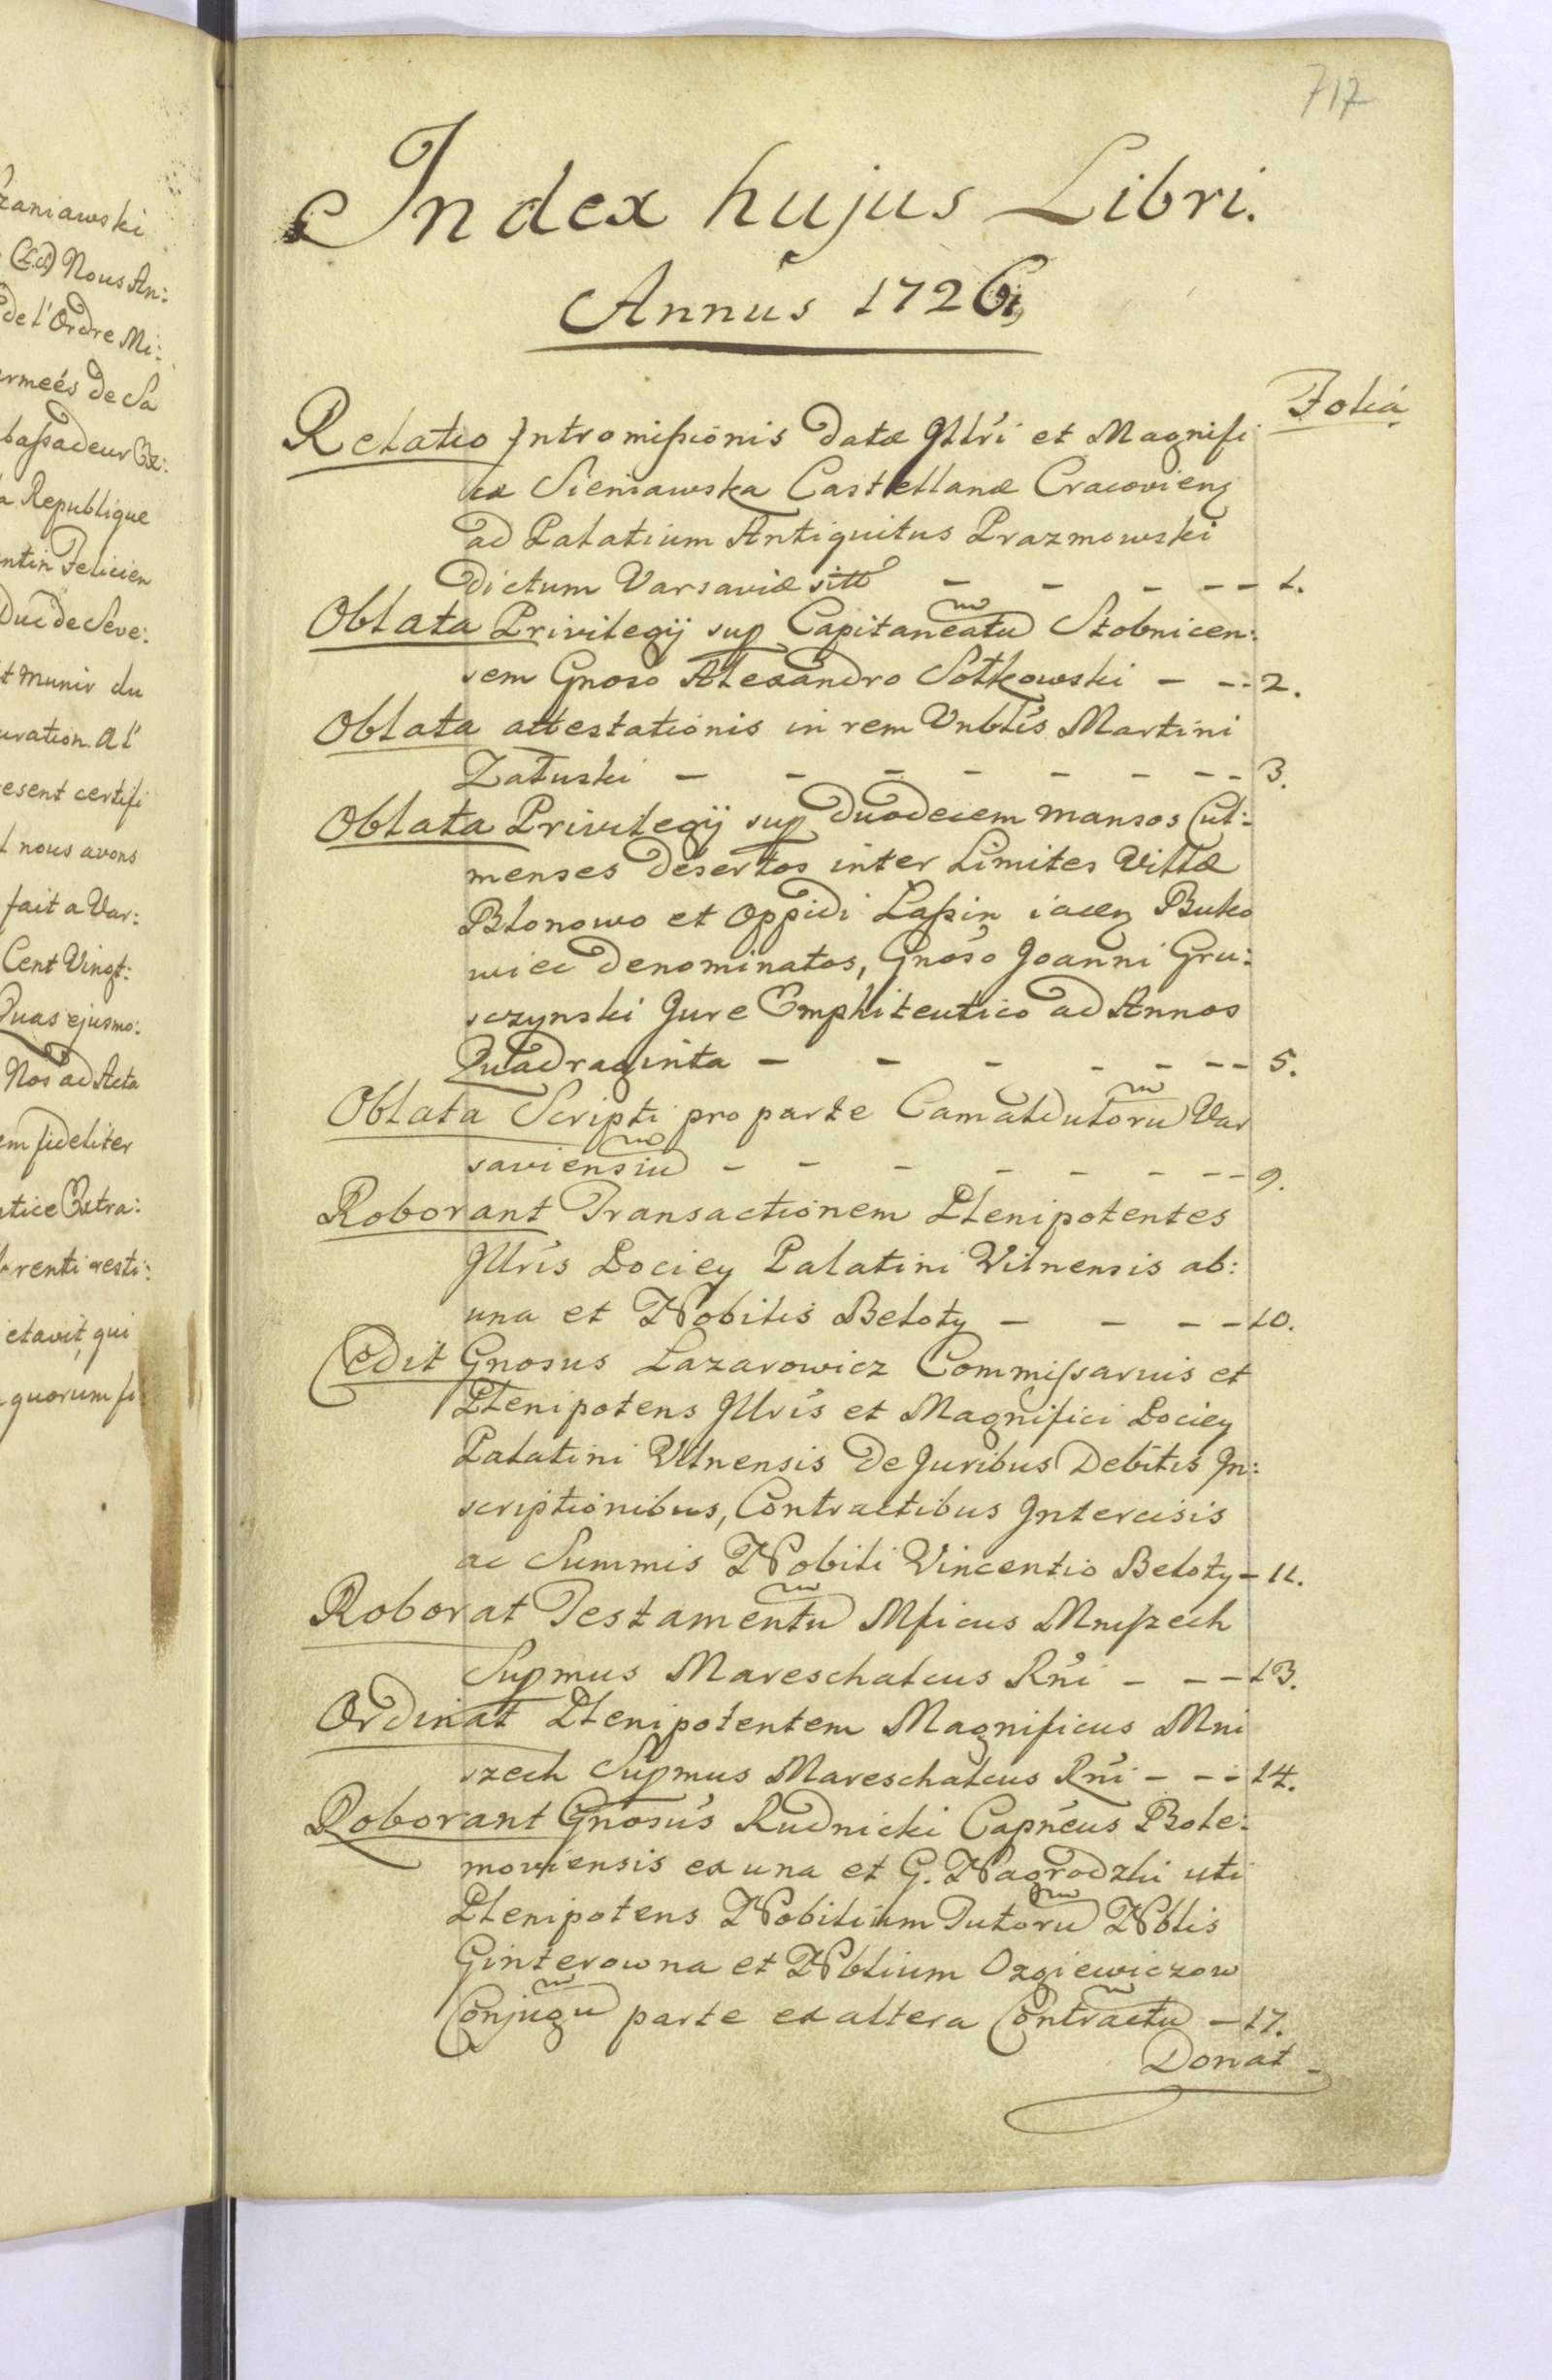 zaniawski
(LS) Nous An:
de l'Ordre Mi:
armeés de Sa
bassadeur Ex:
a Republique
ntin Felicien
Duc de Seve:
t munir du
uration. Al'
esent certifi
t nous avons
fait a Var:
Cent Vingt:
Quas ejusmo:
Nos ad Acta
em fideliter
tice Extra:
renti resti:
ctavit, qui
quorum fi
717
Index hujus Libri.
Annus 1726,
Folia
Relatio Intromissionis datæ Illri et Magnifi
cæ Sieniawska Castellanæ Cracovien
ad Palatium Antiquitus Prazmowski
dictum Varsaviæ sitt - - - - - 1.
Oblata Privilegij sup Capitaneatu Stobnicen:
sem Gnoso Alexandro Sołkowski - - - 2.
Oblata attestationis in rem Vnblis Martini
Załuski - - - - - - - - 3.
Oblata Privilegij sup duodecem mansos Cul:
menses desertos inter Limites Villæ
Blonowo et oppidi Lassin iacen Buko
wiec denominatos, Gnoso Joanni Gru:
sczynski Jure Emphiteutico ad Annos
Quadraginta - - - - - - - 5.
Oblata Scripti pro parte Camaldutoru Var
saviensiu - - - - - - - - 9.
Roborant Transactionem Plenipotentes
Illris Pociey Palatini Vilnensis ab:
una et Nobilis Beloty - - - - 10.
Cedit Gnosus Lazarowicz Commissarius et
Plenipotens Illris et Magnifici Pociey
Palatini Vilnensis de Juribus Debitis In:
scriptionibus, Contractibus Intercisis
ac Summis Nobili Vincentio Beloty - 11.
Roborat Testamentu Mficus Mniszech
Supmus Mareschalcus Rni - - - 13.
Ordinat Plenipotentem Magnificus Mni
szech Supmus Mareschalcus Rni - - - 14.
Roborant Gnosus Rudnicki Capneus Bole:
moviensis ex una et G. Nagrodzki uti
Plenipotens Nobilium Tutoru Nblis
Ginterowna et Nblium Ozgiewiczow
Conjugu parte ex altera Contractu - 17.
Donat